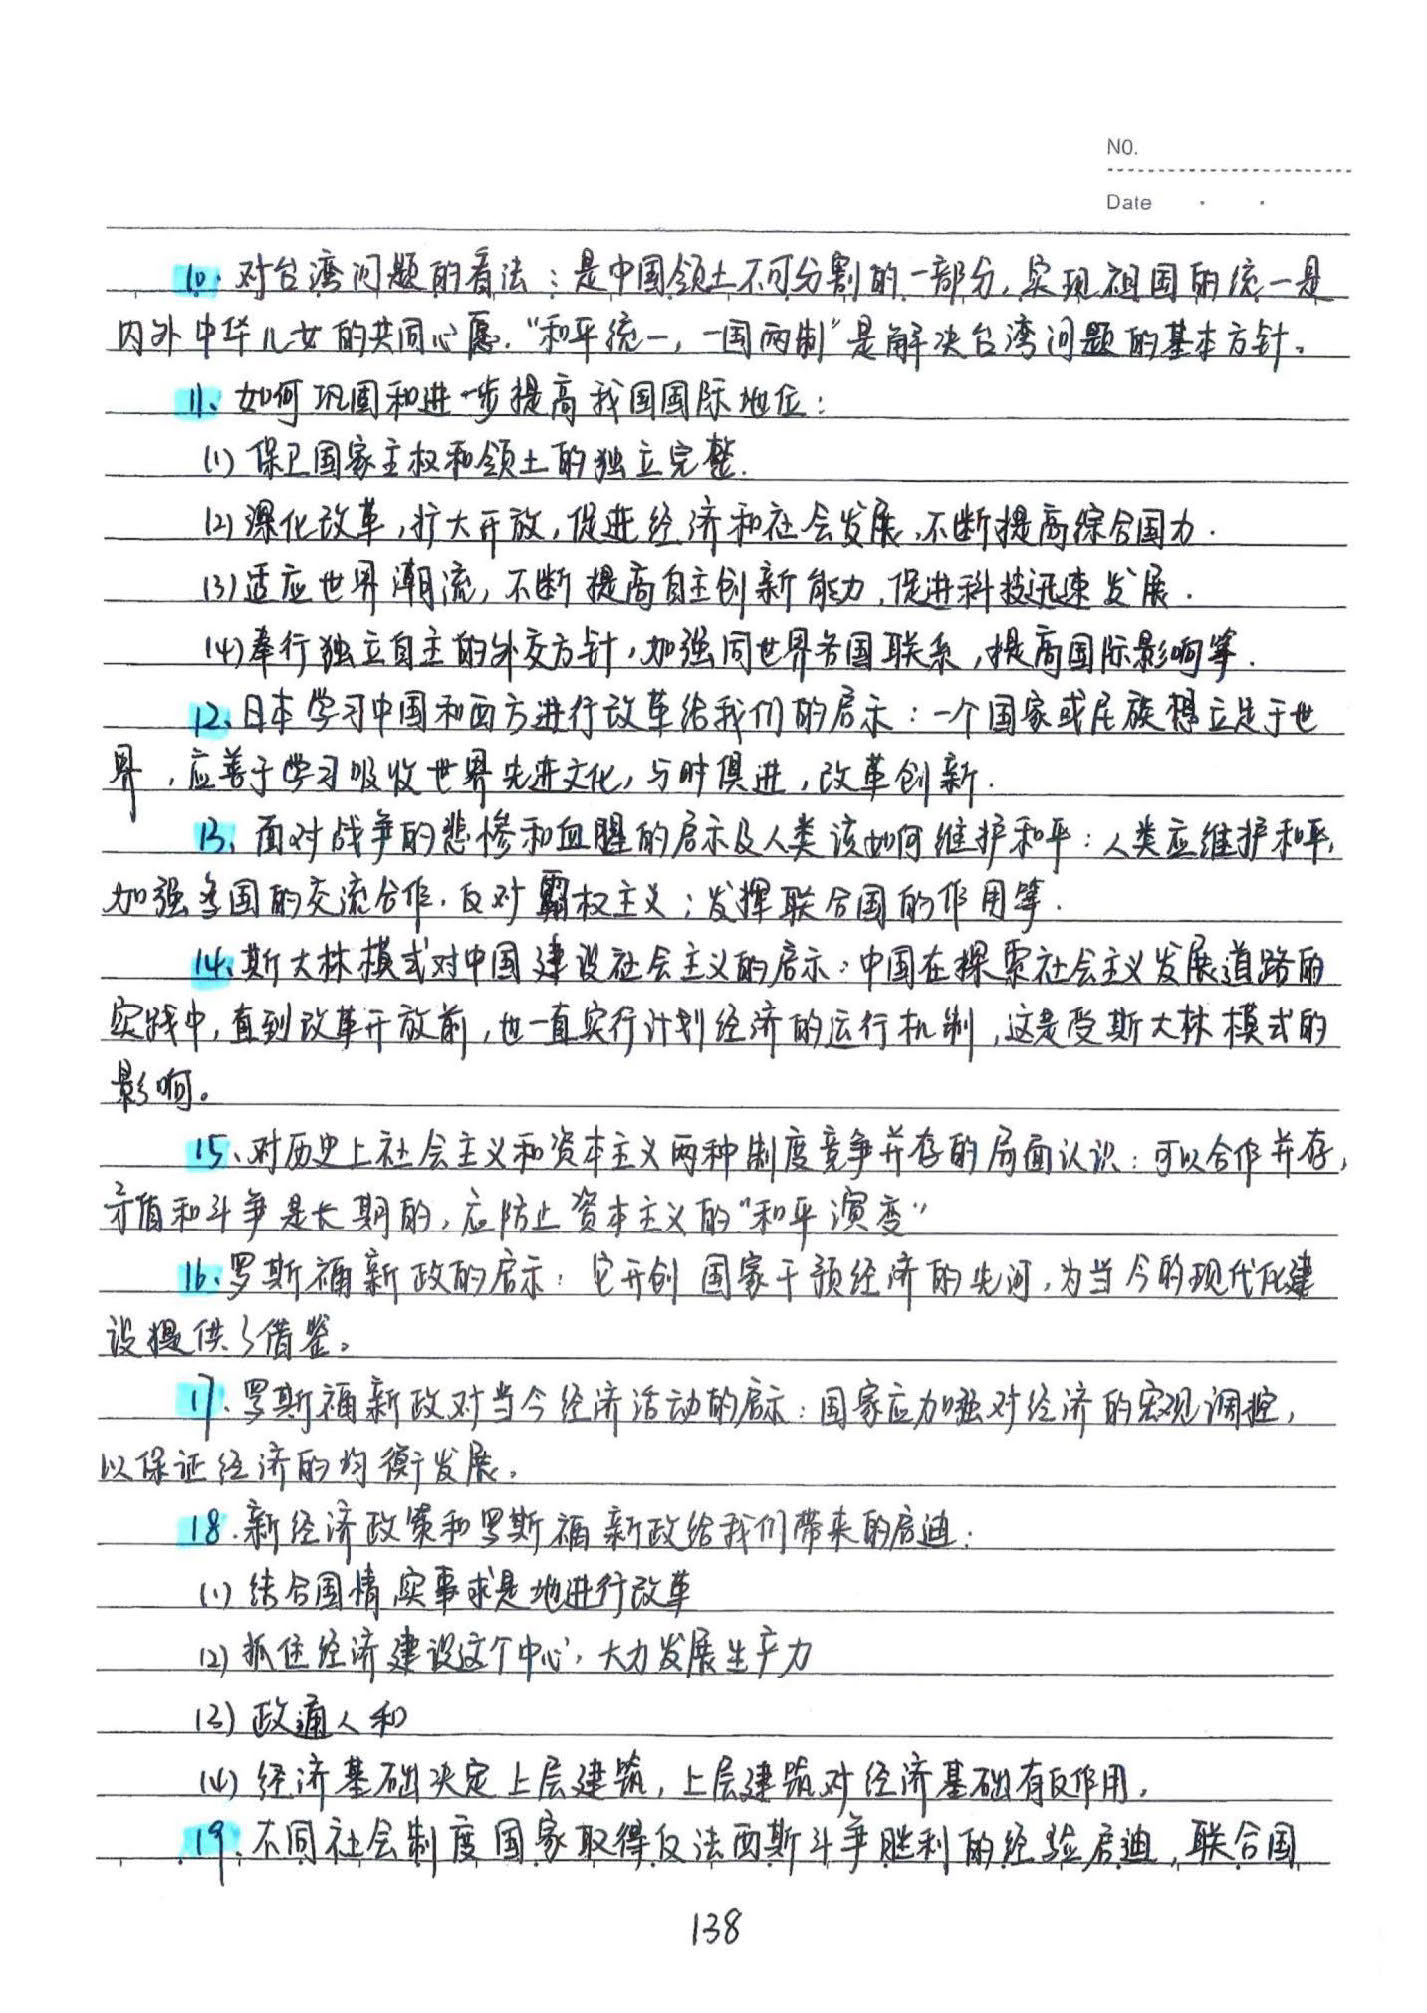 NO.
Date
10. 对台湾问题的看法：是中国领土不可分割的一部分，实现祖国的统一是
内外中华儿女的共同心愿."和平统一，一国两制"是解决台湾问题的基本方针。
11、如何巩固和进一步提高我国国际地位：
(1) 保卫国家主权和领土的独立完整.
(2) 深化改革，扩大开放，促进经济和社会发展，不断提高综合国力.
(3) 适应世界潮流，不断提高自主创新能力，促进科技迅速发展.
(4) 奉行独立自主的外交方针，加强同世界各国联系，提高国际影响等.
12、日本学习中国和西方进行改革给我们的启示：一个国家或民族想立足于世
界，应善于学习吸收世界先进文化，与时俱进，改革创新.
13、面对战争的悲惨和血腥的启示及人类该如何维护和平：人类应维护和平，
加强多国的交流合作，反对霸权主义；发挥联合国的作用等.
14、斯大林模式对中国建设社会主义的启示：中国在探索社会主义发展道路的
实践中，直到改革开放前，也一直实行计划经济的运行机制，这是受斯大林模式的
影响。
15、对历史上社会主义和资本主义两种制度竞争并存的局面认识：可以合作并存，
矛盾和斗争是长期的，应防止资本主义的"和平演变"
16、罗斯福新政的启示：它开创国家干预经济的先河，为当今的现代化建
设提供了借鉴。
17、罗斯福新政对当今经济活动的启示：国家应加强对经济的宏观调控，
以保证经济的均衡发展。
18.新经济政策和罗斯福新政给我们带来的启迪：
(1) 结合国情实事求是地进行改革
(2) 抓住经济建设这个中心，大力发展生产力
(3) 政通人和
(4) 经济基础决定上层建筑，上层建筑对经济基础有反作用.
19、不同社会制度国家取得反法西斯斗争胜利的经验启迪，联合国
138